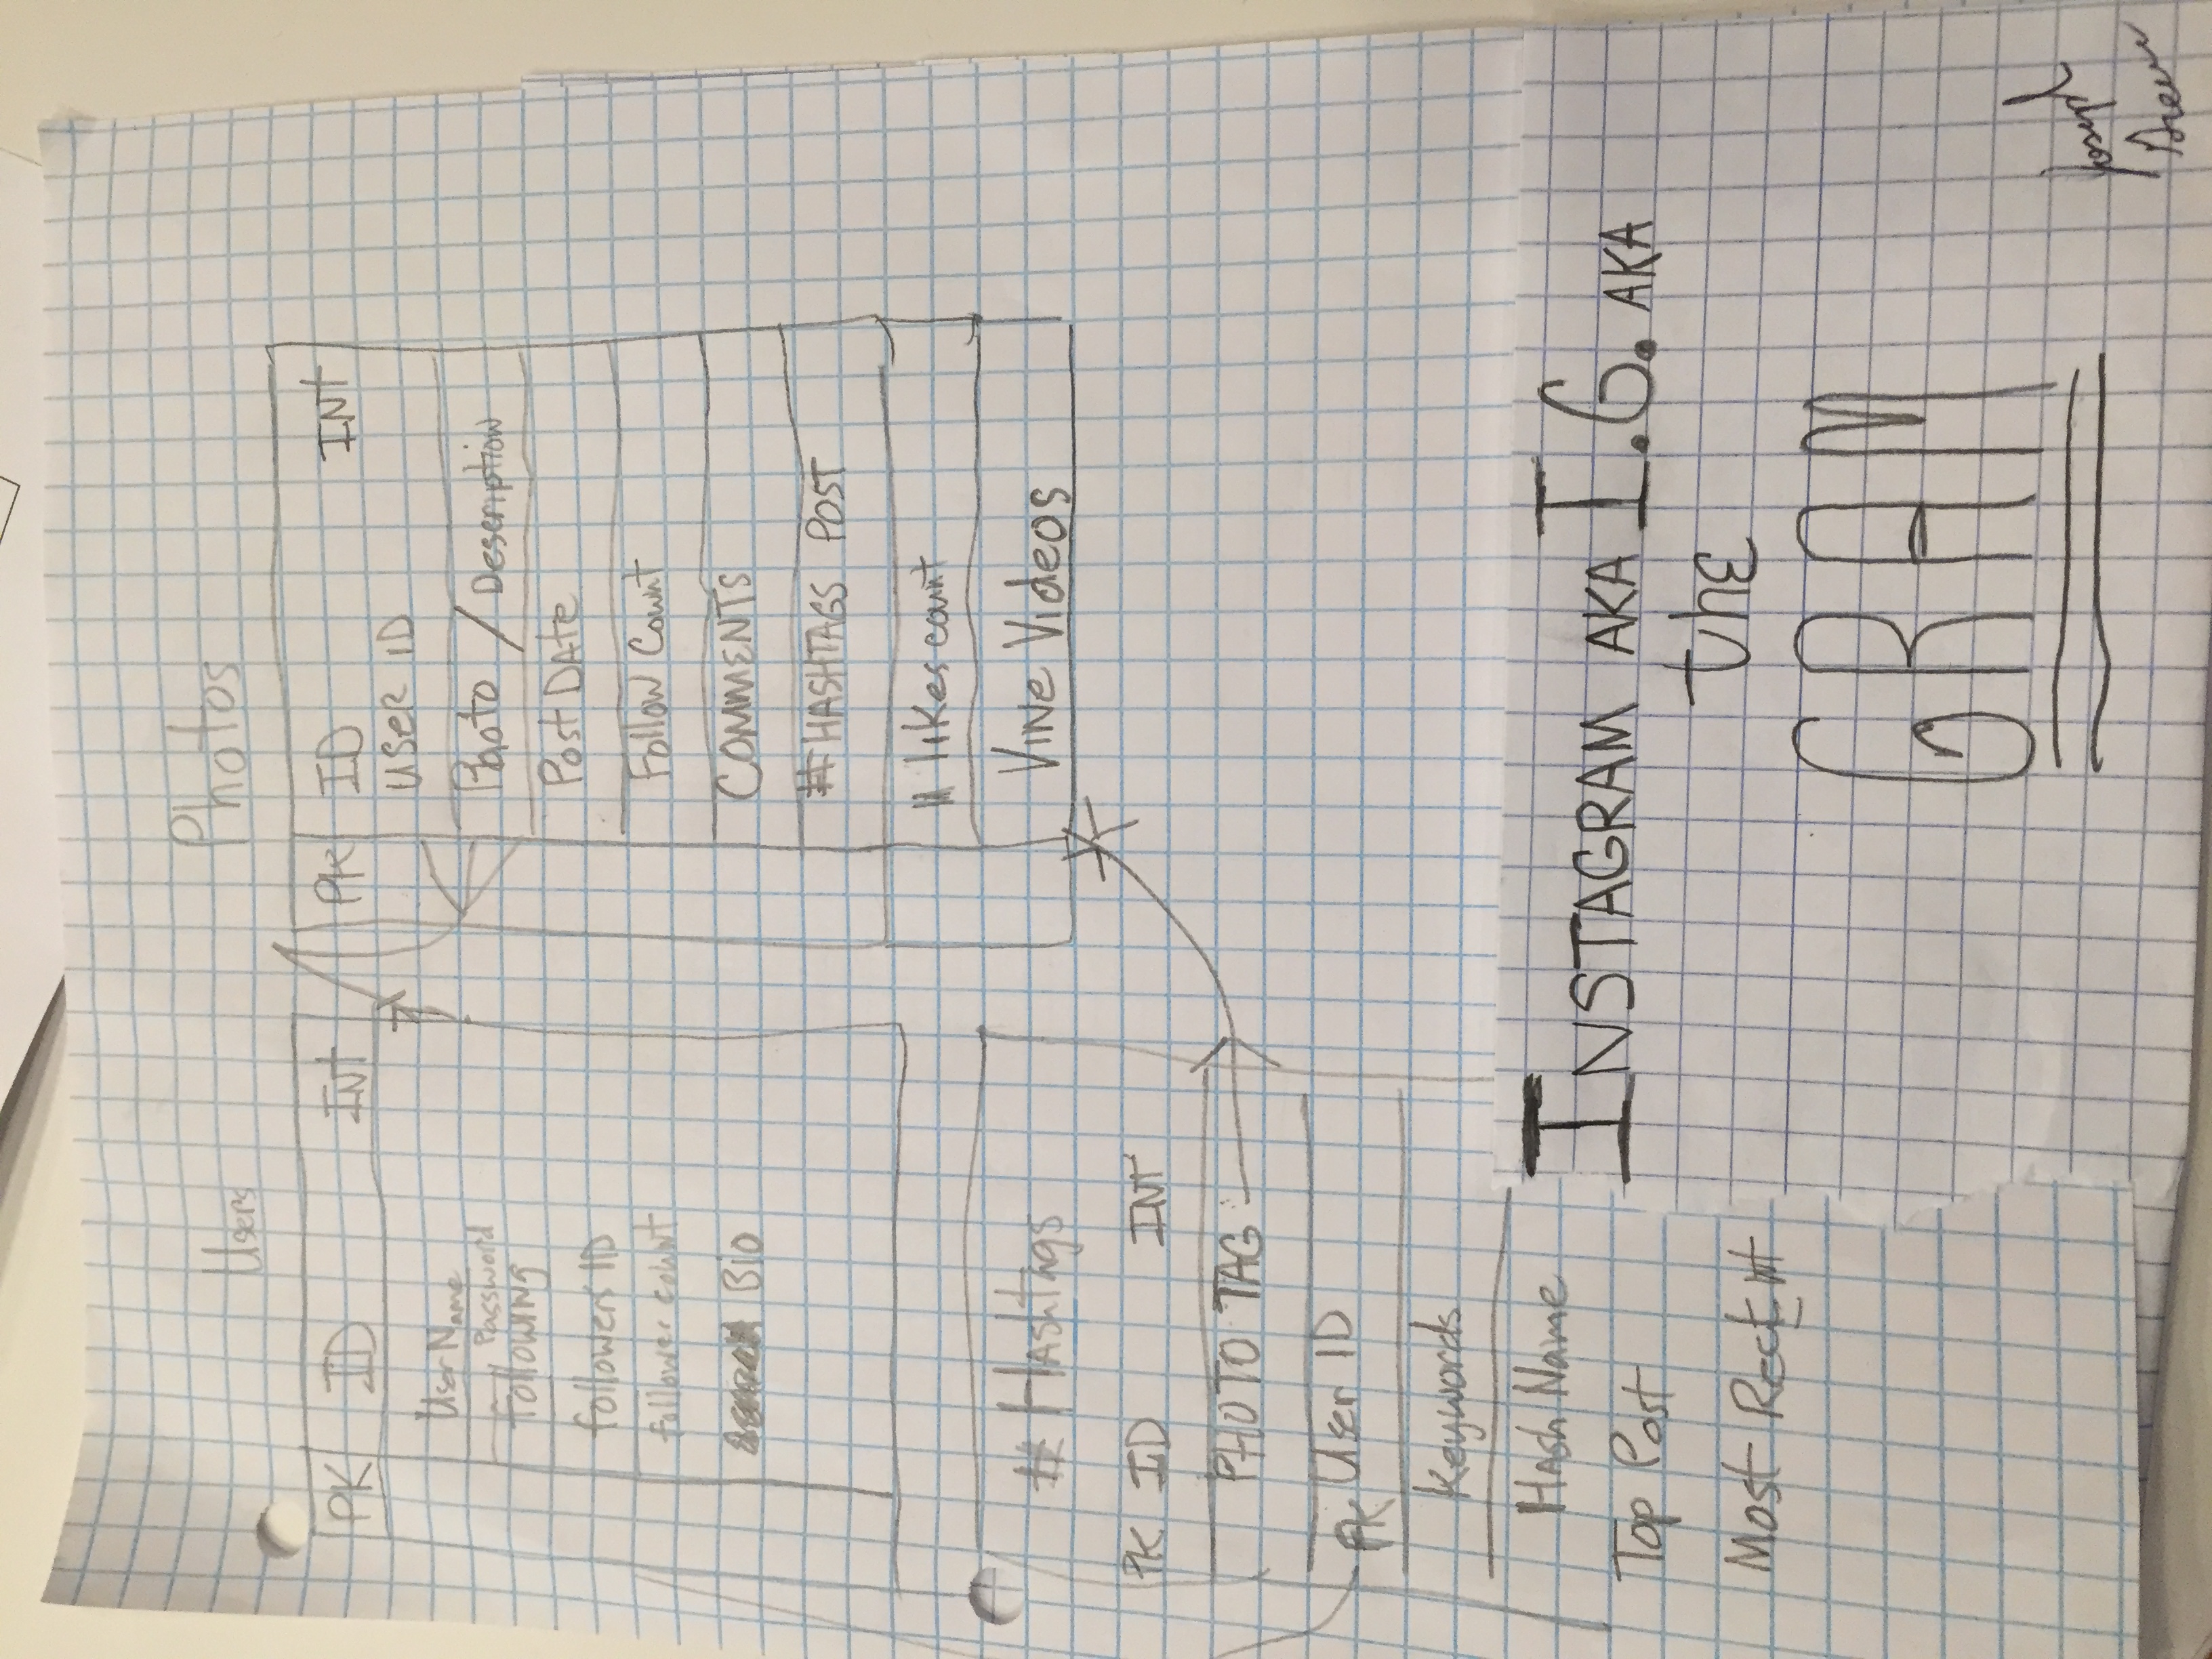 Users
PK ID INT
UserName
Password
following
followers ID
follower count
Bio
Photos
PK ID INT
USER ID
Photo / Description
Post DATE
Follow Count
COMMENTS
#HASHTAGS POST
likes count
Vine Videos
# Hashtags
PK ID INT
PHOTO TAG
FK User ID
Keywords
Hash Name
Top Post
Most Recent
INSTAGRAM AKA I.G. AKA
the
GRAM
Joseph